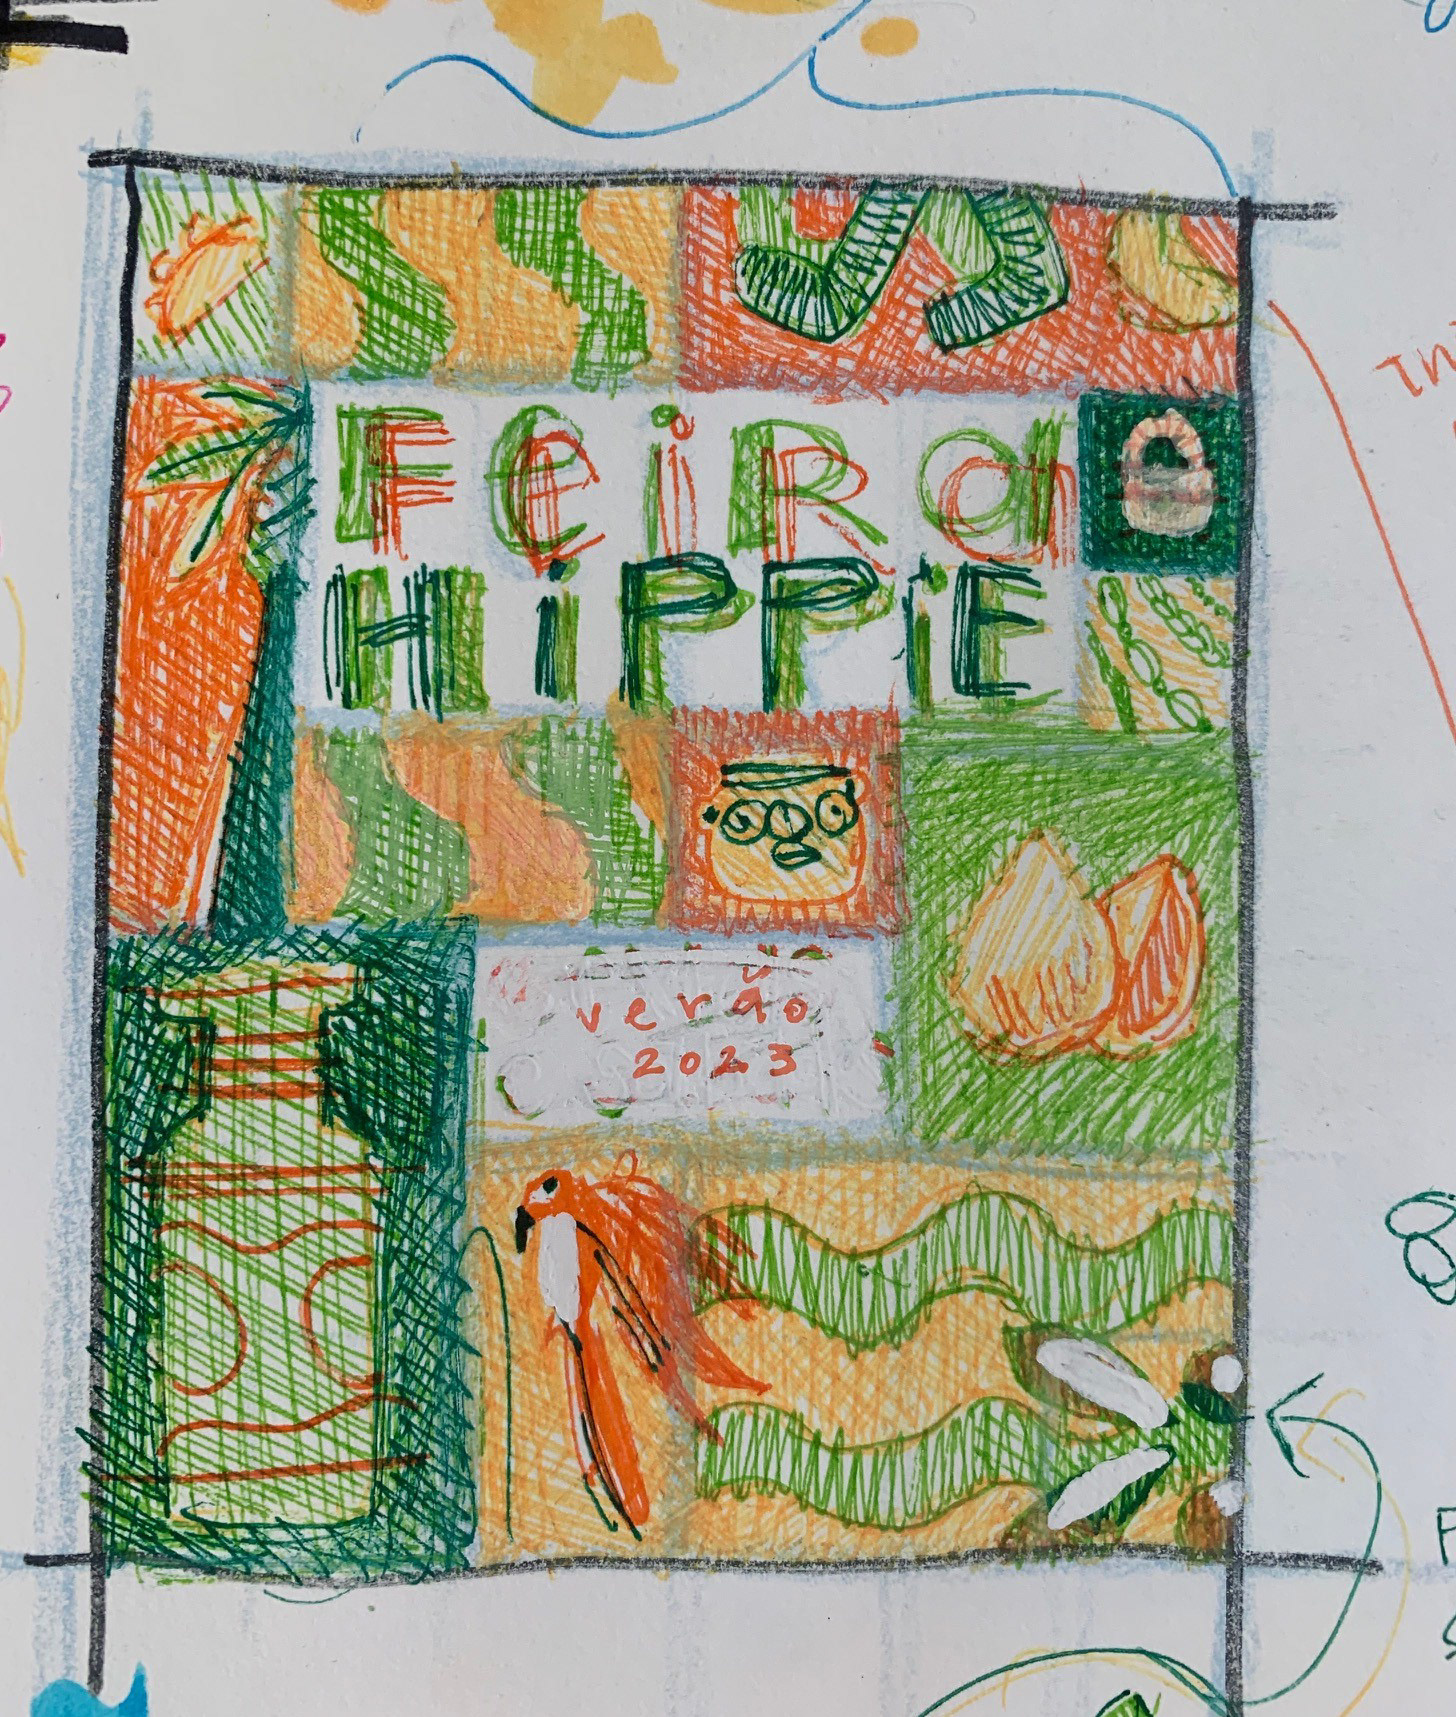 FeiRa
HiPPiE
verão
2023